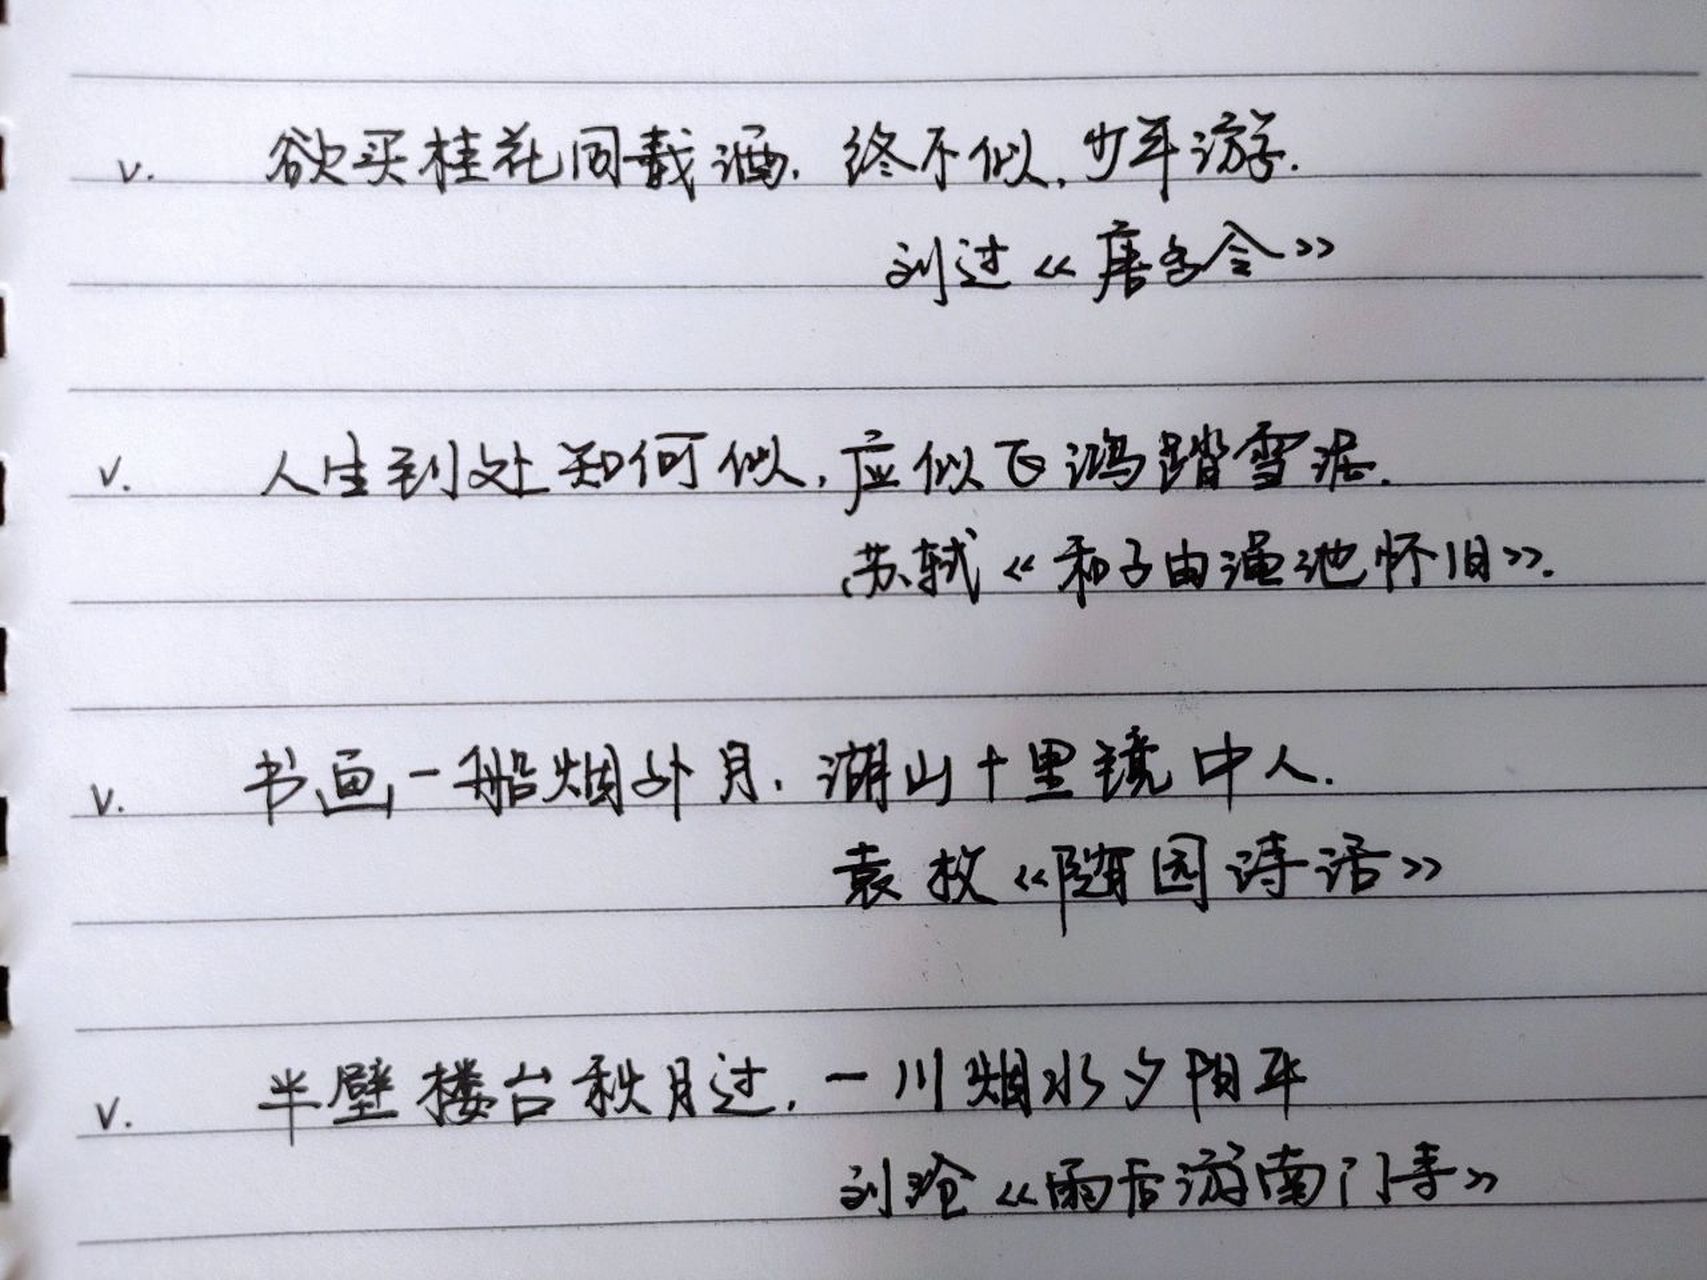 v. 欲买桂花同载酒. 终不似, 少年游.
刘过《唐多令》
v. 人生到处知何似, 应似飞鸿踏雪泥.
苏轼《和子由渑池怀旧》.
v. 书画一船烟外月, 湖山十里镜中人.
袁枚《随园诗话》
v. 半壁楼台秋月过, 一川烟水夕阳平
刘沧《雨后游南门寺》